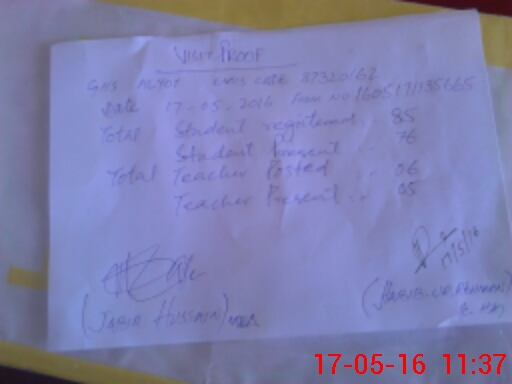 VISIT PROOF
GHS EMIS CODE 87320162
Date 17-05-2016 Form No
Total Student registered .. 85
Student Present .. 76
Total Teacher Posted .. 06
Teacher Present .. 05
17/5/16
(JABIR HUSSAIN) MEA
17-05-16 11:37